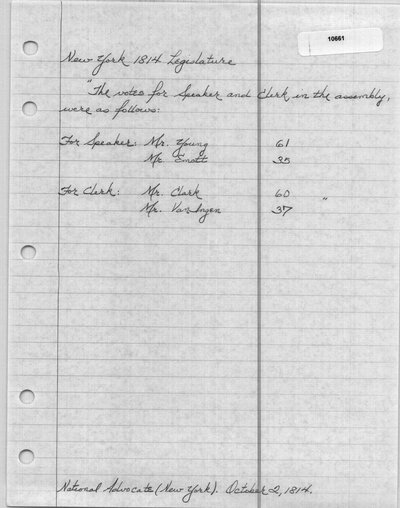 10661
New York 1814 Legislature
"The votes for Speaker and Clerk in the assembly,
were as follows:
For Speaker: Mr. Young 61
Mr. Emott 35
For Clerk: Mr. Clark 60
Mr. Van Ingen 37 "
National Advocate (New York). October 2, 1814.